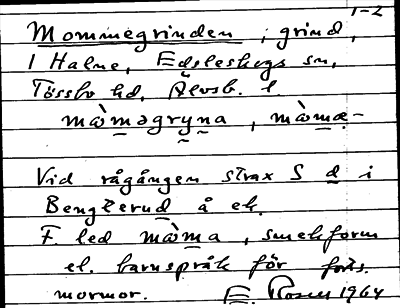 1-2
Mommegrinden, grind,
i Halne, Edsleskogs sn,
Tössbo hd, Älvsb. l
mòməgryna, mòmæ-
Vid rågången strax S d i
Bengterud å ek.
F. led mòma, smekform
el. barnspråk för förts.
mormor. E Rosen 1964